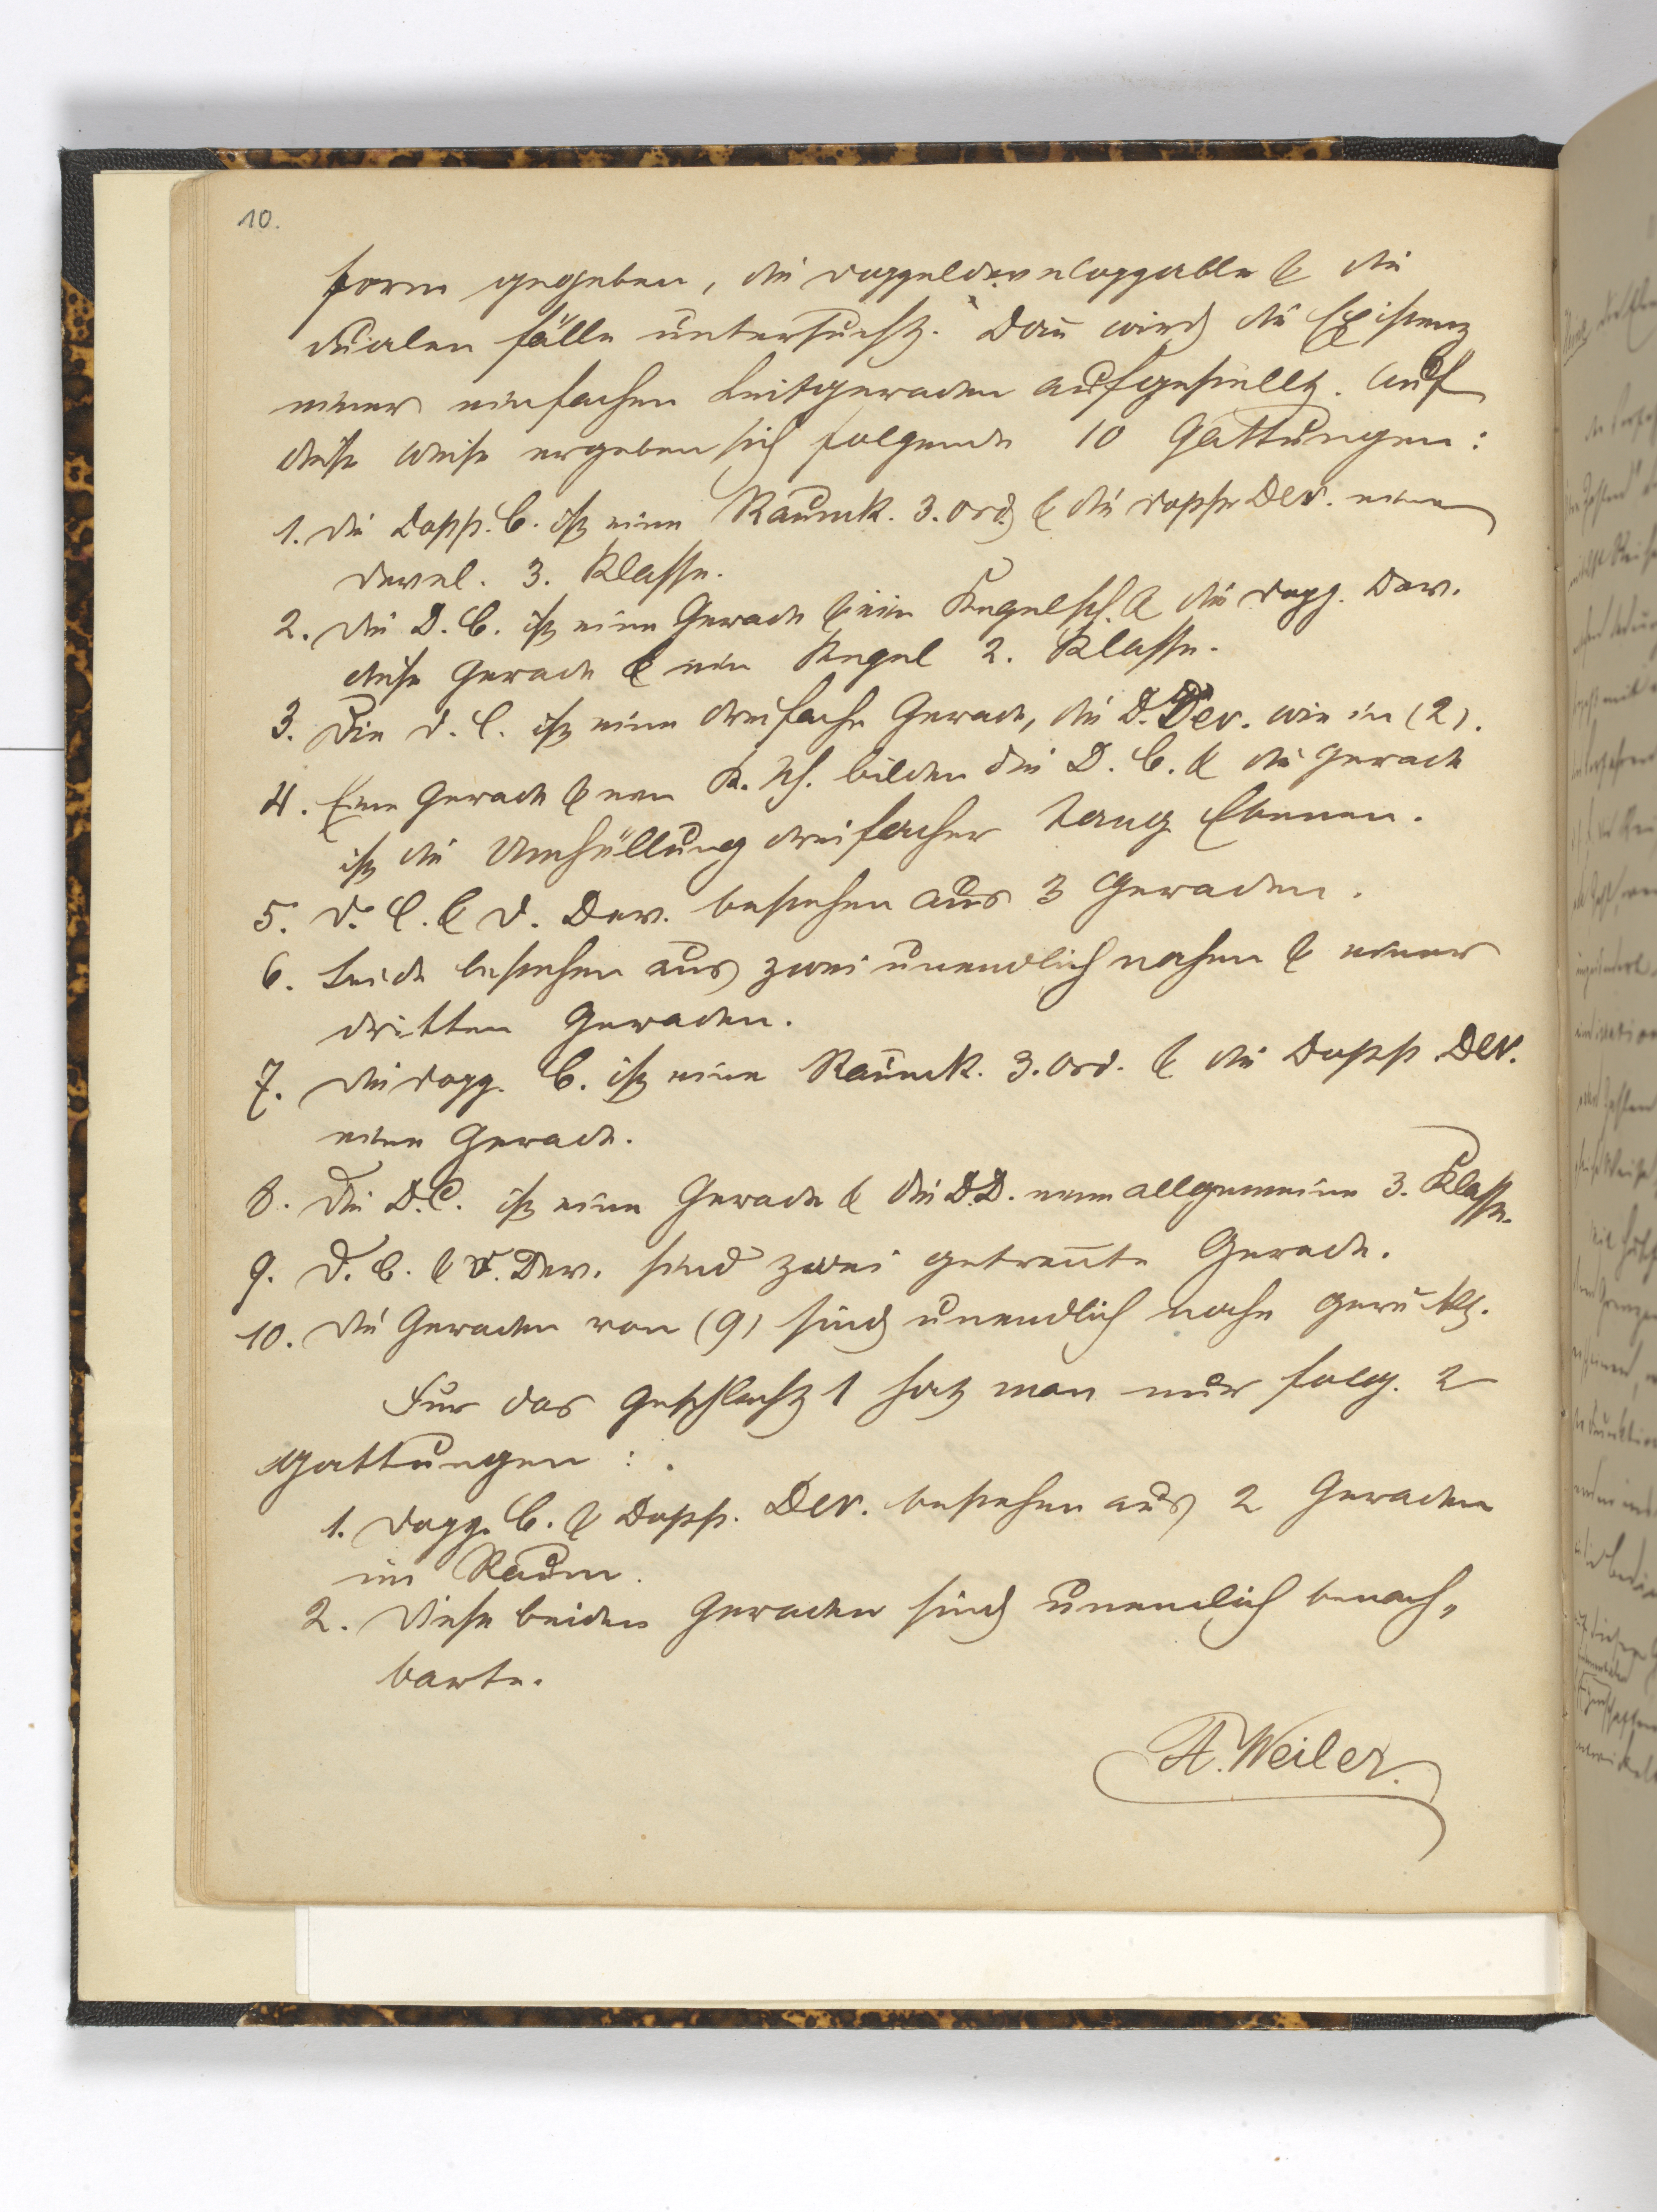 10.
form gegeben, die Doppeldeveloppable & die
dualen Fälle untersucht. Dan̄ wird die Existenz
einer einfachen Leitgeraden aufgestellt. Auf
diese Weise ergeben sich folgende 10 Gattungen:
1. Die Dopp. C. ist eine Raumk. 3. Ord. & die Dopp. Dev. eine
Devel. 3. Klasse.
2. Die D. C. ist eine Gerade & ein Kegelsch. & die Dopp. Dev.
diese Gerade & ein Kegel 2. Klasse.
3. Die D. C. ist eine dreifache Gerade, die D. Dev. wie in (2).
4. Eine Gerade & ein K. Sch. bilden die D. C. & die Gerade
ist die Umhüllung dreifacher Tang. Ebenen.
5. D. C. & D. Dev. bestehen aus 3 Geraden.
6. Beide bestehen aus zwei unendlich nahen & einer
dritten Geraden.
7. Die Dopp. C. ist eine Raumk. 3. Ord. & die Dopp. Dev.
eine Gerade.
8. Die D. C. ist eine Gerade & die D. D. eine allgemeine 3. Klasse.
9. D. C. & D. Dev. sind zwei getren̄te Gerade.
10. Die Geraden von (9) sind unendlich nahe gerückt.
Für das Geschlecht 1 hat man nur folg. 2
Gattungen:
1. Dopp. C. & Dopp. Dev. bestehen aus 2 Geraden
im Raum.
2. Diese beiden Geraden sind unendlich benach-
barte.
A. Weiler.